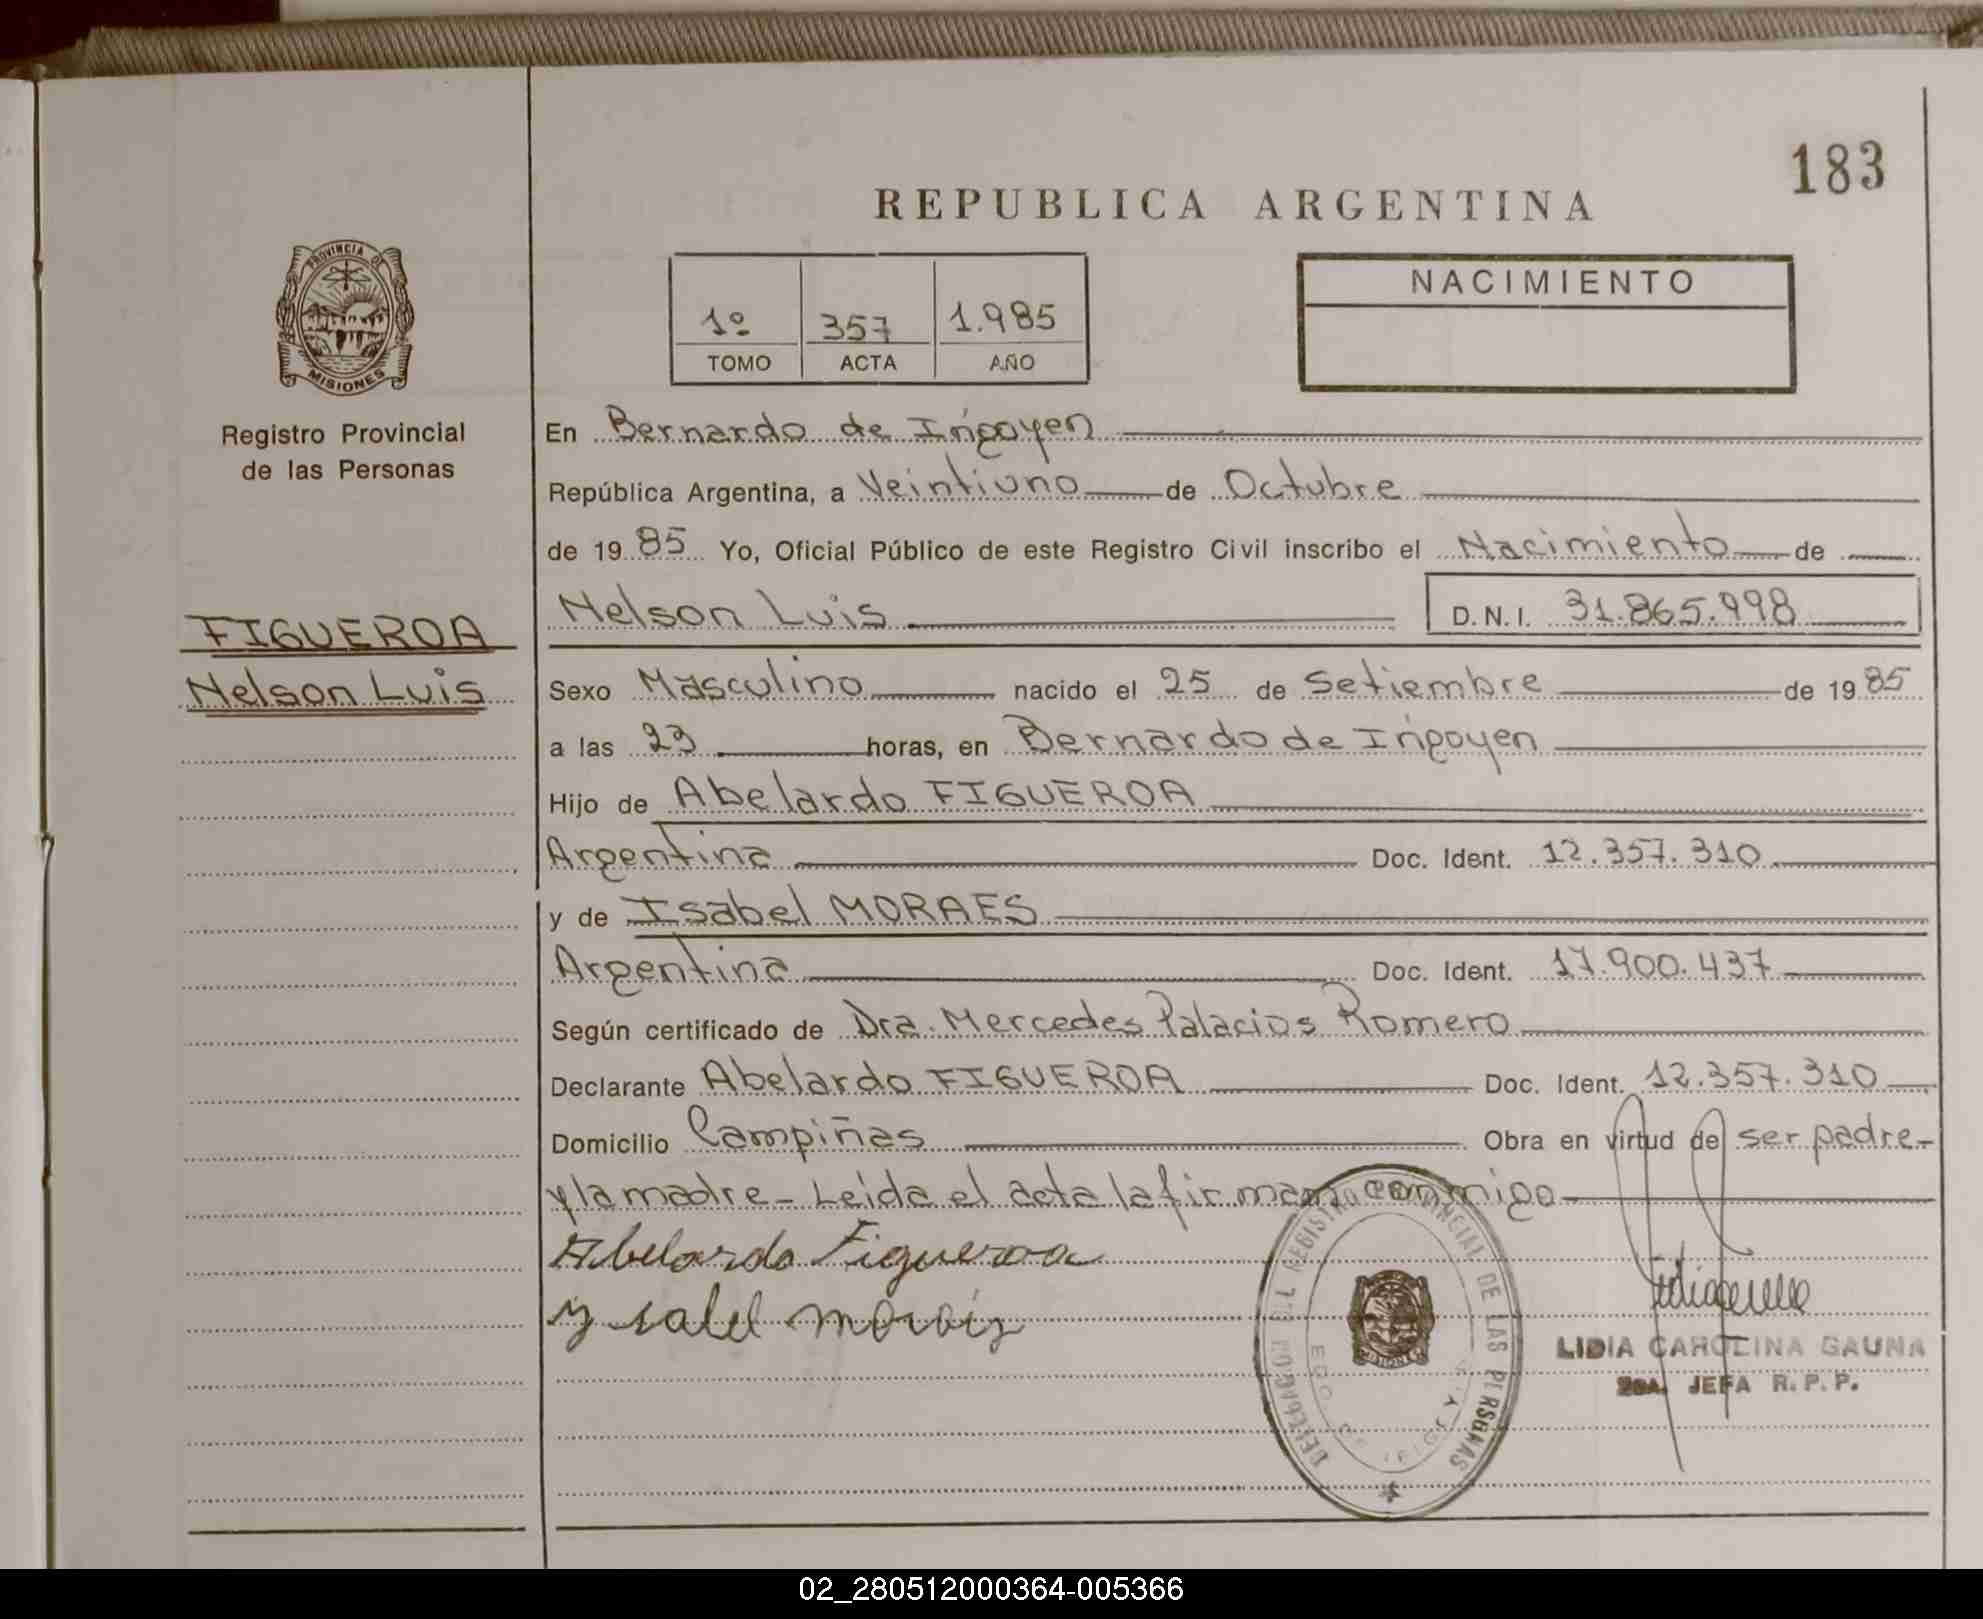 183
REPUBLICA ARGENTINA
PROVINCIA DE
MISIONES
Registro Provincial
de las Personas
1º 357 1.985
TOMO ACTA AÑO
NACIMIENTO
En Bernardo de Irigoyen
República Argentina, a Veintiuno de Octubre
de 1985 Yo, Oficial Público de este Registro Civil inscribo el Nacimiento de
FIGUEROA
Nelson Luis
Nelson Luis D.N.I. 31.865.998
Sexo Masculino nacido el 25 de Setiembre de 1985
a las 23 horas, en Bernardo de Irigoyen
Hijo de Abelardo FIGUEROA
Argentina Doc. Ident. 12.357.310
y de Isabel MORAES
Argentina Doc. Ident. 17.900.437
Según certificado de Dra. Mercedes Palacios Romero
Declarante Abelardo FIGUEROA Doc. Ident. 12.357.310
Domicilio Campiñas Obra en virtud de ser padre-
y la madre- Leida el acta la firman conmigo
Abelardo Figueroa
Ysabel
REGISTRO PROVINCIAL DE LAS PERSONAS
LIDIA CAROLINA GAUNA
JEFA R.P.P.
02_280512000364-005366